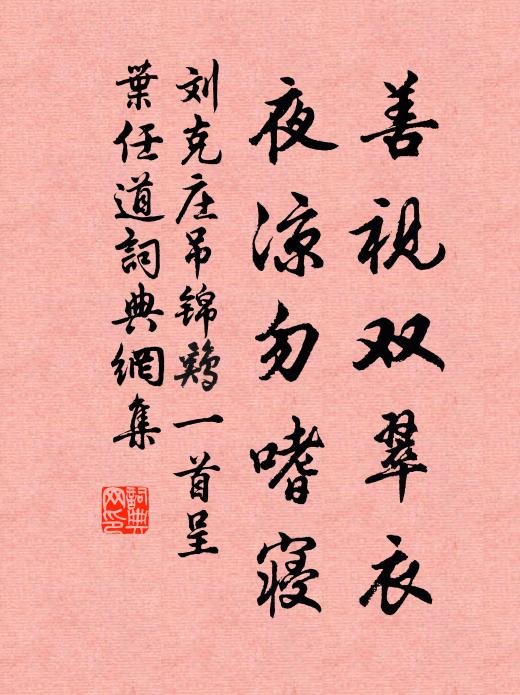 善视双翠衣
夜凉勿嗜寝
刘克庄吊锦鸡一首呈
葉任道詞典網集
詞典网印